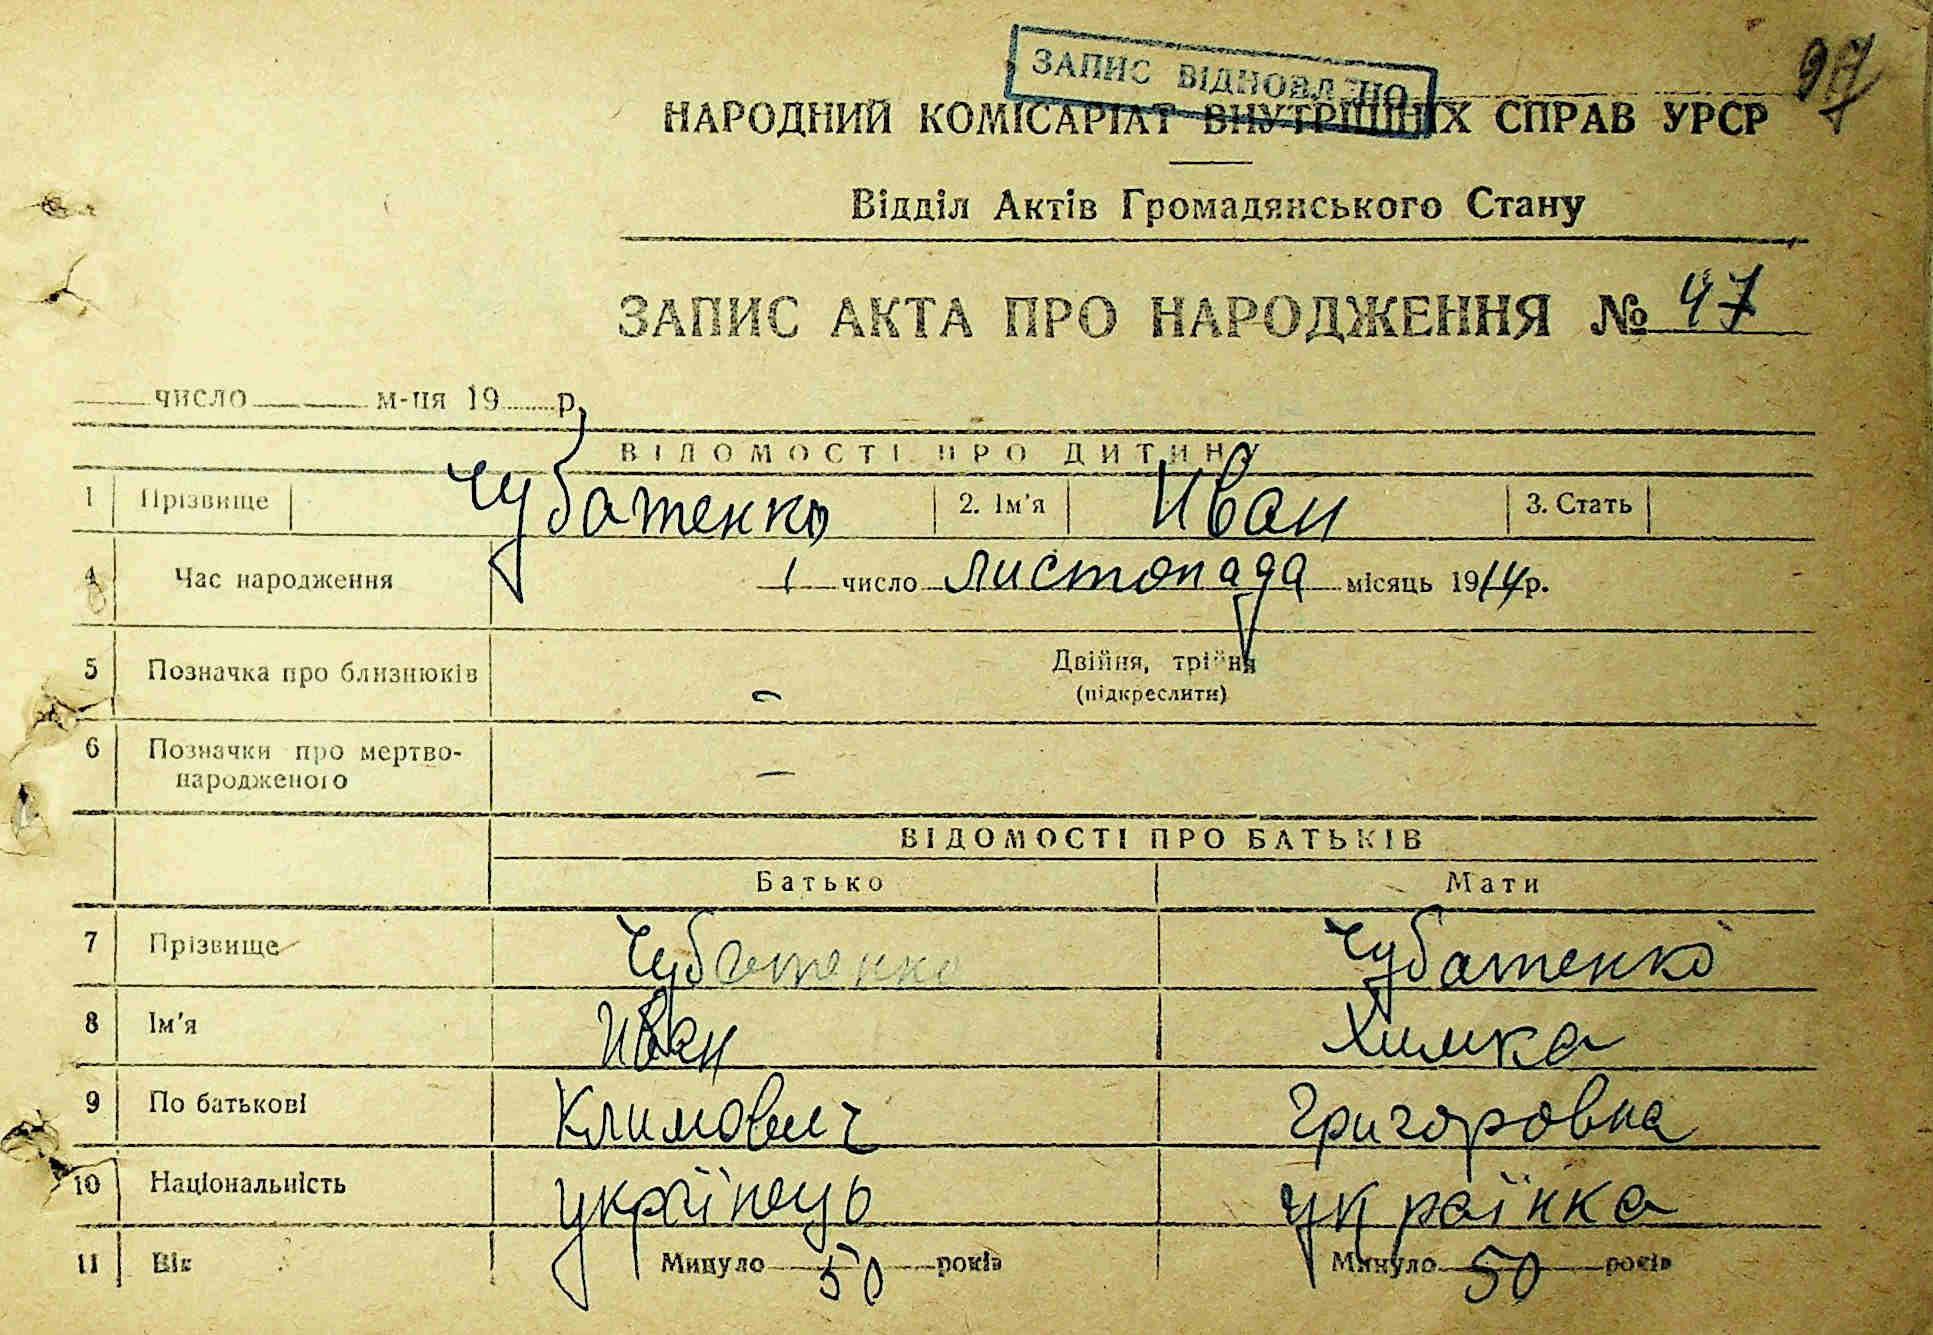 ЗАПИС ВІДНОВЛЕНО
97
НАРОДНИЙ КОМІСАРІАТ ВНУТРІШНІХ СПРАВ УРСР
Відділ Актів Громадянського Стану
ЗАПИС АКТА ПРО НАРОДЖЕННЯ № 47
число м-ця 19 р.
ВІДОМОСТІ ПРО ДИТИНУ
1 Прізвище Чубатенко 2. Ім'я Иван 3. Стать
4 Час народження 1 число листопада місяць 1914 р.
5 Позначка про близнюків - Двійня, трійня
(підкреслити)
6 Позначки про мертво-
народженого -
ВІДОМОСТІ ПРО БАТЬКІВ
Батько Мати
7 Прізвище Чубатенко Чубатенко
8 Ім'я Иван Химка
9 По батькові Климович Григоровна
10 Національність українець українка
11 Вік Минуло 50 років Минуло 50 років